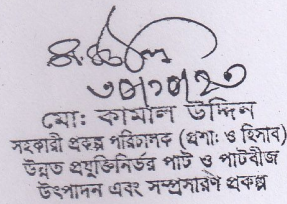 ৩০/১০/২০
মো: কামাল উদ্দিন
সহকারী প্রকল্প পরিচালক (প্রশাঃ ও হিসাব)
উন্নত প্রযুক্তিনির্ভর পাট ও পাটবীজ
উৎপাদন এবং সম্প্রসারণ প্রকল্প